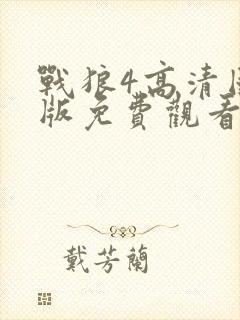 戰狼4高清
版免費觀看
戴芳蘭